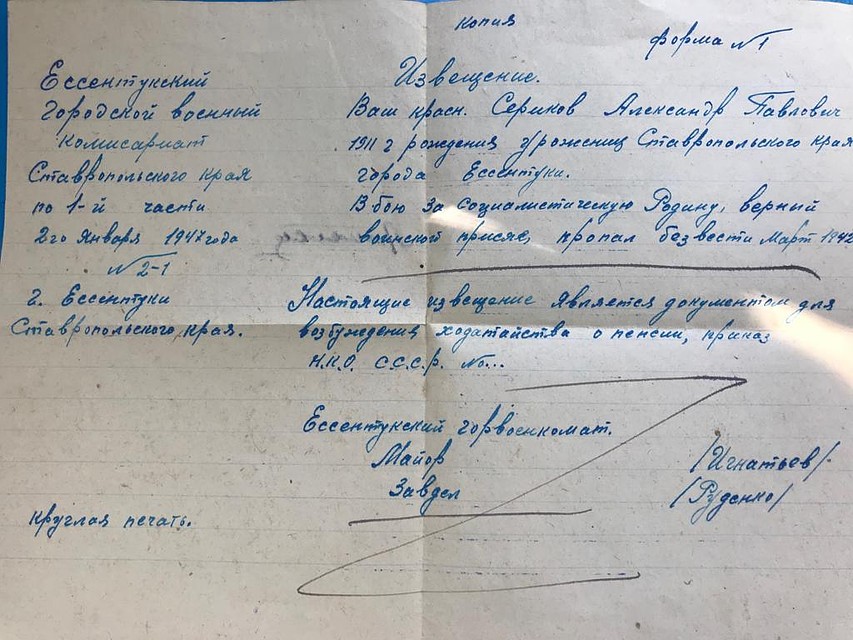 копия
форма №1
Ессентукский
Городской военный
комисариат
Ставропольского края
по 1-й части
2го Января 1947 года
№ 2-1
г. Ессентуки
Ставропольского края.
Извещение.
Ваш красн. Сериков Александр Павлович
1911 г рождения урожениц Ставропольского края
города Ессентуки.
В бою за социалистическую Родину, верный
воинской присяе, пропал без вести Март 1942
Настоящие извещение является документом для
возбуждения ходатайства о пенсии, приказ
Н.К.О. С.С.С.Р. №...
Ессентукский горвоенкомат.
Майор /Игнатьев/.
Завдел /Руденко/
круглая печать.